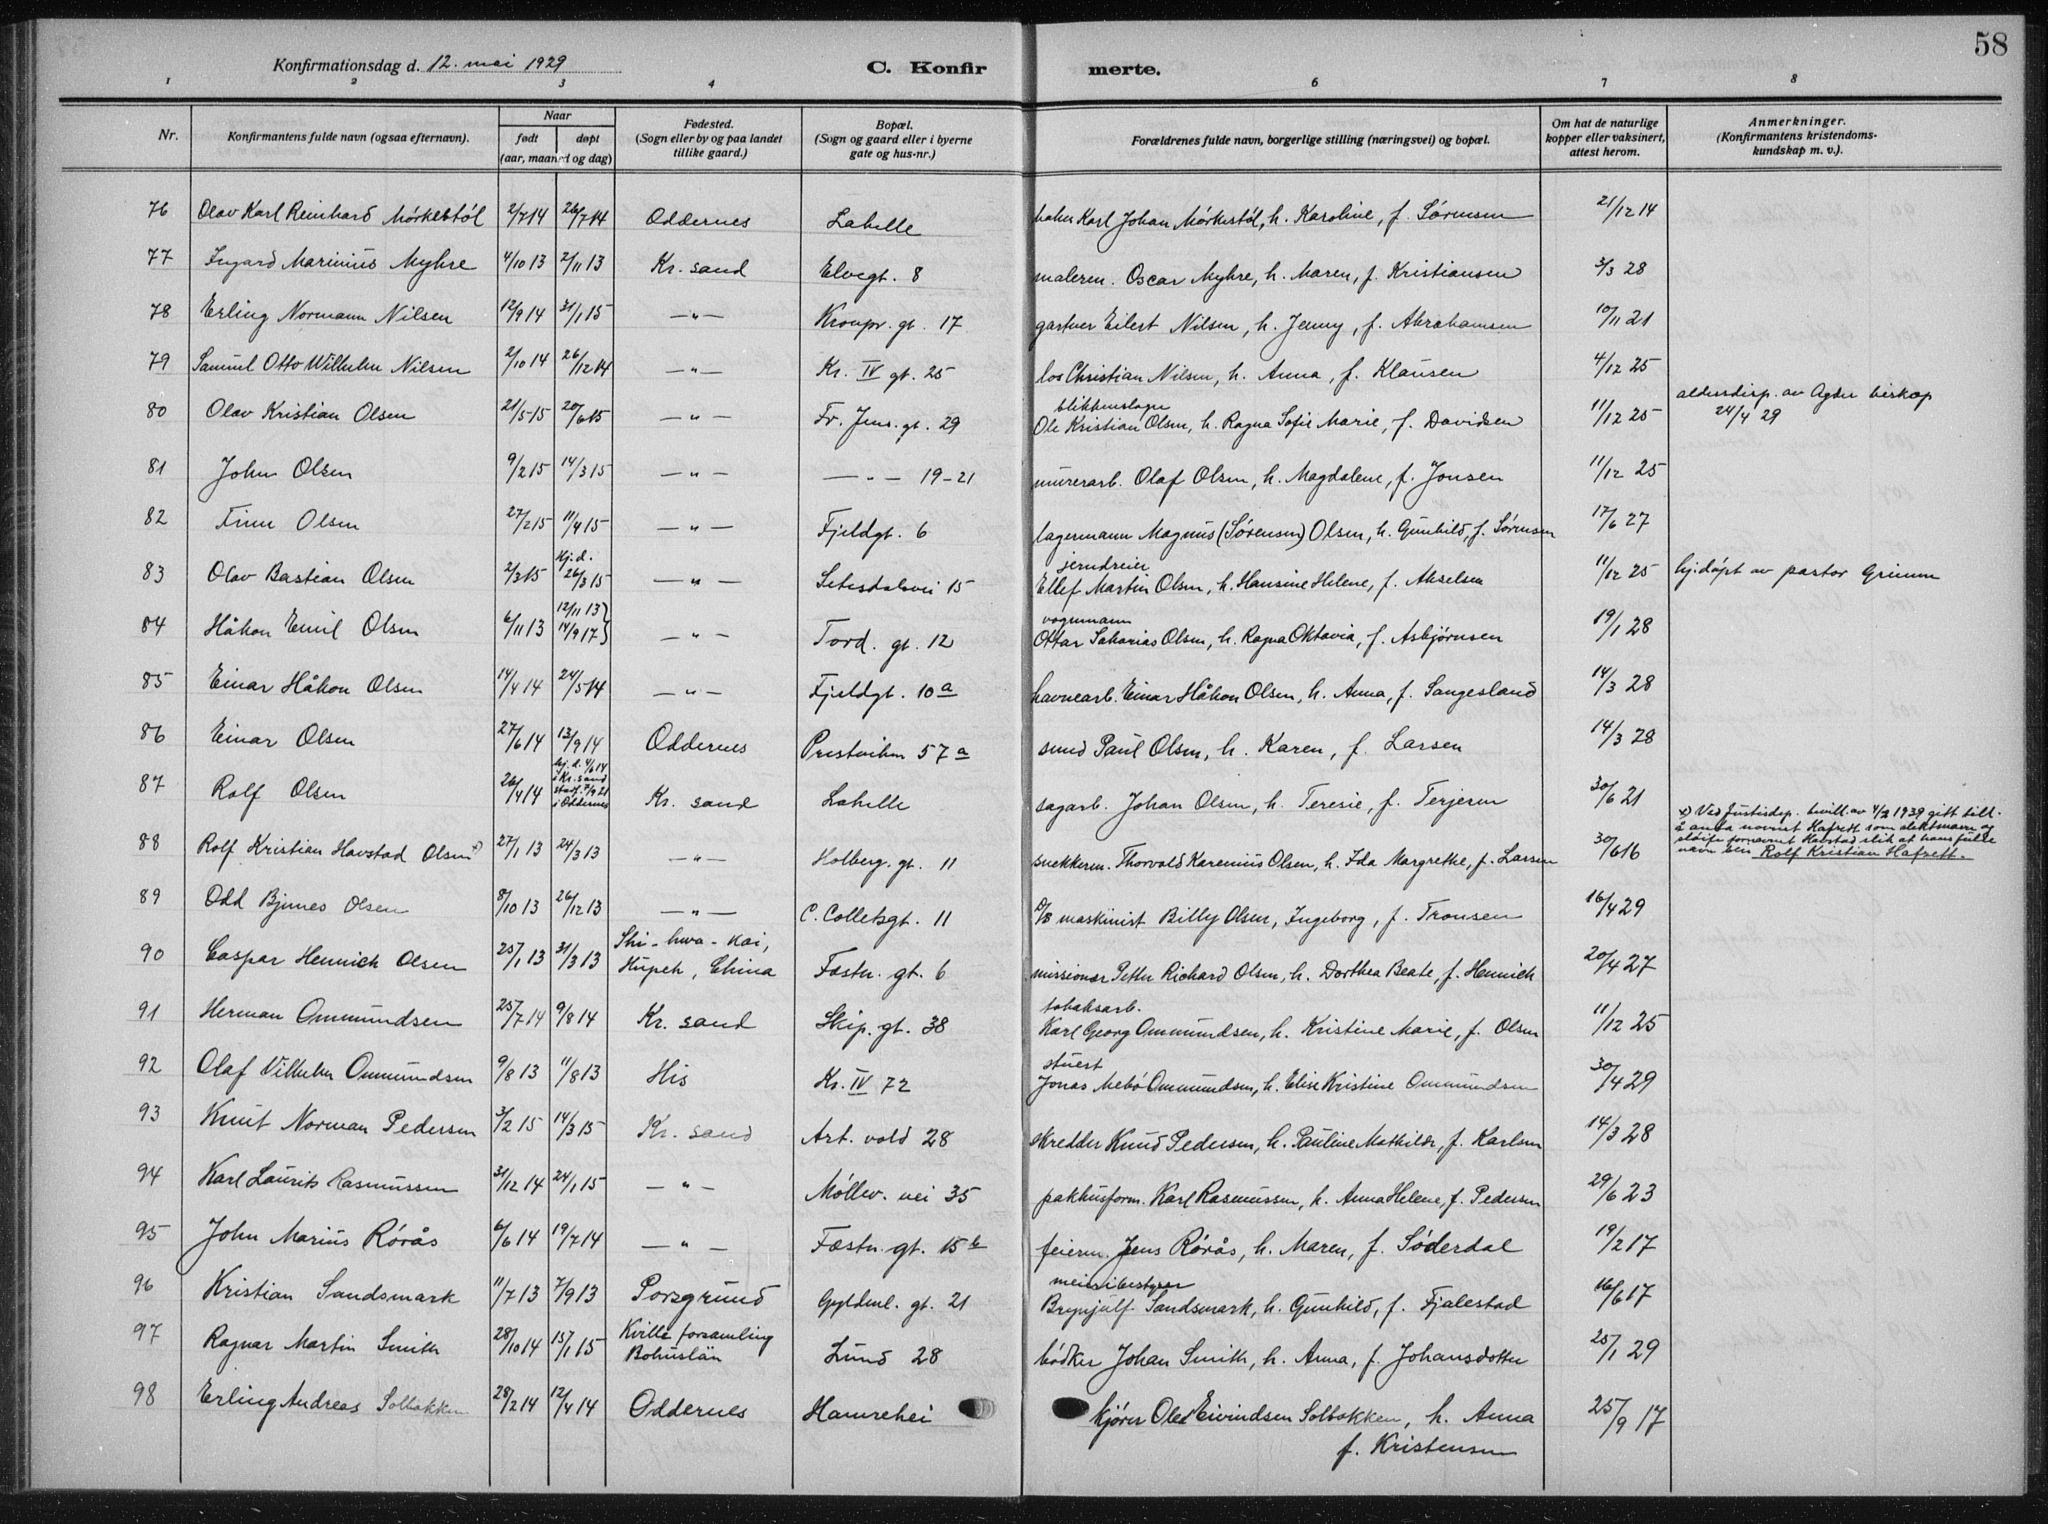 58
Konfirmationsdag d. 12. mai 1929
C. Konfir merte.
1 2 3 4 6 7 8
Nr.
Konfirmantens fulde navn (ogsaa efternavn).
Naar
født
døpt
(aar, maaned og dag)
Fødested.
(Sogn eller by og paa landet
tillike gaard.)
Bopæl.
(Sogn og gaard eller i byerne
gate og hus-nr.)
Forældrenes fulde navn, borgerlige stilling (næringsvei) og bopæl.
Om hat de naturlige
kopper eller vaksinert,
attest herom.
Anmerkninger.
(Konfirmantens kristendoms-
kundskap m. v.).
76 Olav Karl Reinhard Mörkestöl 2/7 14 26/7 14 Oddernes Lahelle Karl Johan Mörkestöl, h. Karoline, f. Sørensen 21/12 14
77 Ingard Marinius Myhre 4/10 13 2/11 13 Kr. sand Elvegt. 8 malerm. Oscar Myhre, h. Maren, f. Kristiansen 3/3 28
78 Erling Normann Nilsen 12/9 14 31/1 15 — " — Kronpr. gt. 17 gartner Eilert Nilsen, h. Jenny, f. Abrahamsen 10/11 21
79 Samuel Otto Wilhelm Nilsen 2/10 14 26/12 14 — " — Kr. IV gt. 25 los Christian Nilsen, h. Anna, f. Klausen 4/12 25
80 Olav Kristian Olsen 21/5 15 20/6 15 — " — Fr. Jens. gt. 29 blikkenslager
Ole Kristian Olsen, h. Ragna Sofie Marie, f. Davidsen 11/12 25 aldersdisp. av Agder biskop
24/4 29
81 John Olsen 9/2 15 14/3 15 — " — — " — 19-21 murerarb. Olaf Olsen, h. Magdalene, f. Jonsen 11/12 25
82 Finn Olsen 27/2 15 11/4 15 — " — Fjeldgt. 6 lagermann Magnus (Sørensen) Olsen, h. Gunhild, f. Sørensen 17/6 27
83 Olav Bastian Olsen 2/3 15 Hj.d. 26/3 15 — " — Setesdalsvei 15 jerndreier
Ellef Martin Olsen, h. Hansine Helene, f. Akselsen 11/12 25 hj.döpt av pastor Grimm
84 Håkon Emil Olsen 6/11 13 12/11 13} 14/9 17} — " — Tord. gt. 12 vognmann
Ottar Sakarias Olsen, h. Ragna Oktavia, f. Asbjørnsen 19/1 28
85 Einar Håkon Olsen 14/4 14 24/5 14 — " — Fjeldgt. 10 a havnearb. Einar Håkon Olsen, h. Anna, f. Sangesland 14/3 28
86 Einar Olsen 27/6 14 13/9 14 Oddernes Prestvikn 57 a smed Paul Olsen, h. Karen, f. Larsen 14/3 28
87 Rolf Olsen 26/4 14 hj. d. 4/6 14
i Kr. sand
stadf. 7/9 21
i Oddernes Kr. sand Lahelle sagarb. Johan Olsen, h. Teresie, f. Terjesen 30/6 21
88 Rolf Kristian Havstad Olsen x) 27/1 13 24/3 13 — " — Holberg. gt. 11 snekkerm. Thorvald Karenius Olsen, h. Ida Margrethe, f. Larsen 30/6 16 x) Ved Justisdep. bevill. av 4/2 1939 gitt till.
å anta navnet Hafrett som slektsnavn og
sløife fornavnet Havstad slik at hans fulde
navn blir Rolf Kristian Hafrett.
89 Odd Bjunes Olsen 8/10 13 26/12 13 — " — C. Colletsgt. 11 D/S maskinist Billy Olsen, Ingeborg, f. Tronsen 16/4 29
90 Caspar Hennich Olsen 25/1 13 31/3 13 Shi-hwa-kai,
Hupeh, China Fæstn. gt. 6 missionær Petter Richard Olsen, h. Dorthea Beate, f. Hennich 20/4 27
91 Herman Ommundsen 25/7 14 9/8 14 Kr. sand Skip. gt. 38 tobaksarb.
Karl Georg Ommundsen, h. Kristine Marie, f. Olsen 11/12 25
92 Olaf Vilhelm Ommundsen 9/8 13 11/8 13 His Kr. IV 72 stuert
Jonas Mebö Ommundsen, h. Elise Kristine Ommundsen 30/4 29
93 Knut Norman Pedersen 3/2 15 14/3 15 Kr. sand Art. vold 28 skredder Knud Pedersen, h. Pauline Mathilde, f. Karlsen 14/3 28
94 Karl Laurits Rasmussen 31/12 14 24/1 15 — " — Möllev. vei 35 pakhusform. Karl Rasmussen, h. Anna Helene, f. Pedersen 29/6 23
95 John Marius Rörås 6/6 14 19/7 14 — " — Fæstn. gt. 15 b feierm. Jens Rörås, h. Maren, f. Söderdal 19/2 17
96 Kristian Sandsmark 11/7 13 7/9 13 Porsgrund Gyldenl. gt. 21 meieribestyrer
Brynjulf Sandsmark, h. Gunhild, f. Fjalestad 16/6 17
97 Ragnar Martin Smith 28/10 14 15/1 15 Kville forsamling
Bohuslän Lund 28 bödker Johan Smith, h. Anna, f. Johansdotter 25/1 29
98 Erling Andreas Solbakken 28/2 14 12/4 14 Oddernes Hamrehei kjører Olav Eivindsen Solbakken, h. Anna
f. Kristensen 25/9 17